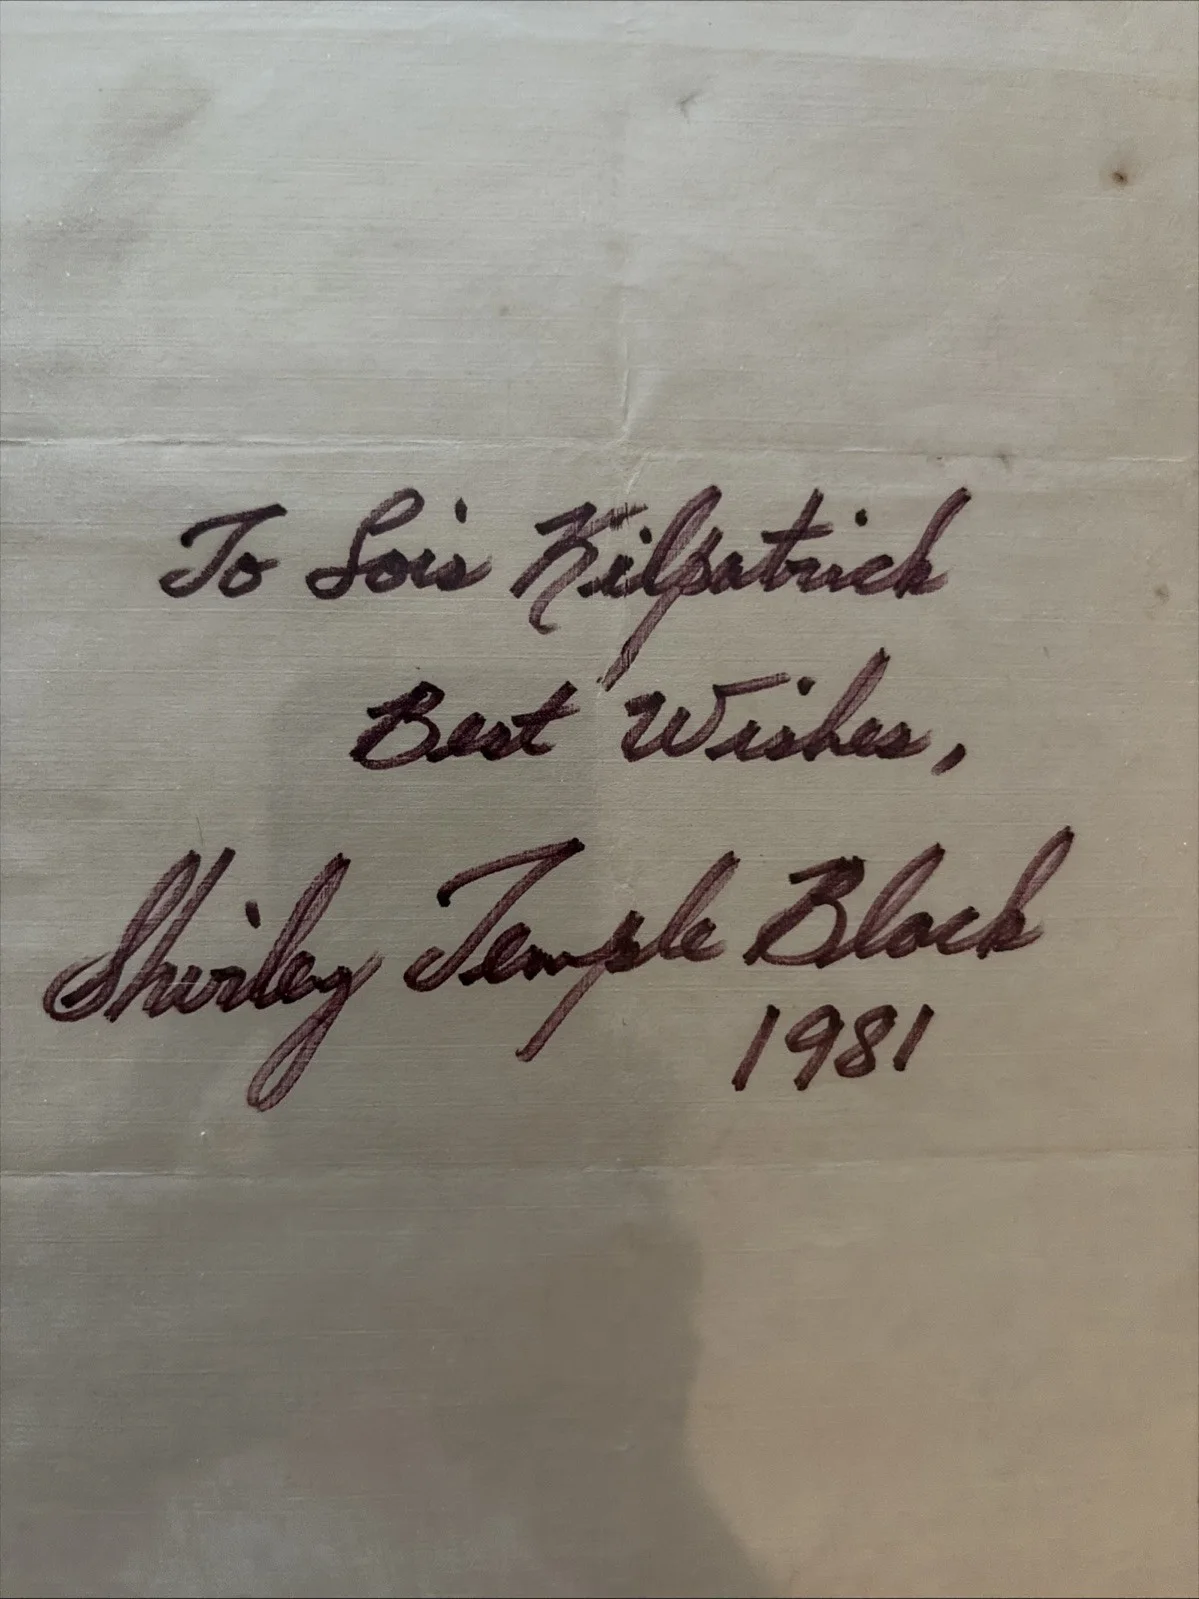 To Lois Kilpatrick
Best Wishes,
Shirley Temple Black
1981